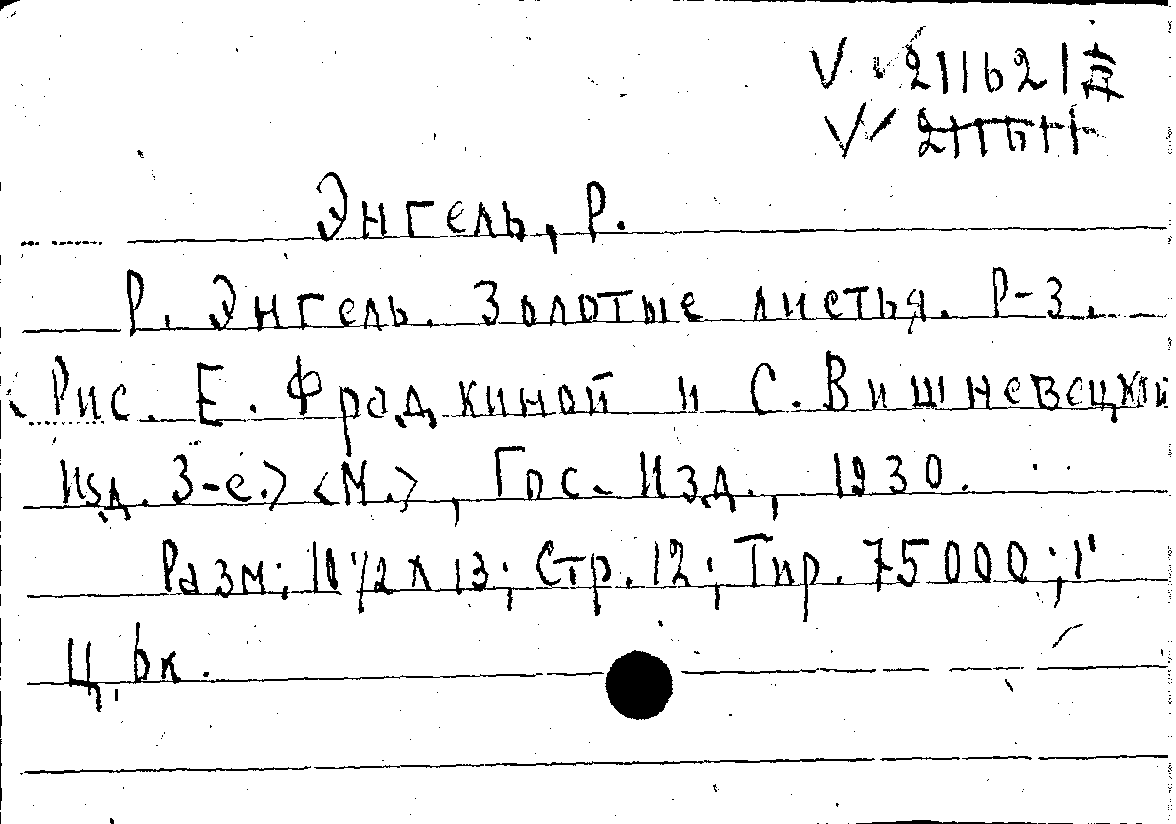 V 211621
V
Энгель, Р.
Р. Энгель. Золотые листья. Р-З.
<Рис. Е. Фрадкиной и С. Вишневецкой
Изд. 3-е.> <М.>, Гос. Изд., 1930.
Разм: 10 1/2 x 13; Стр. 12; Тир. 75000;
Ц. 6к.